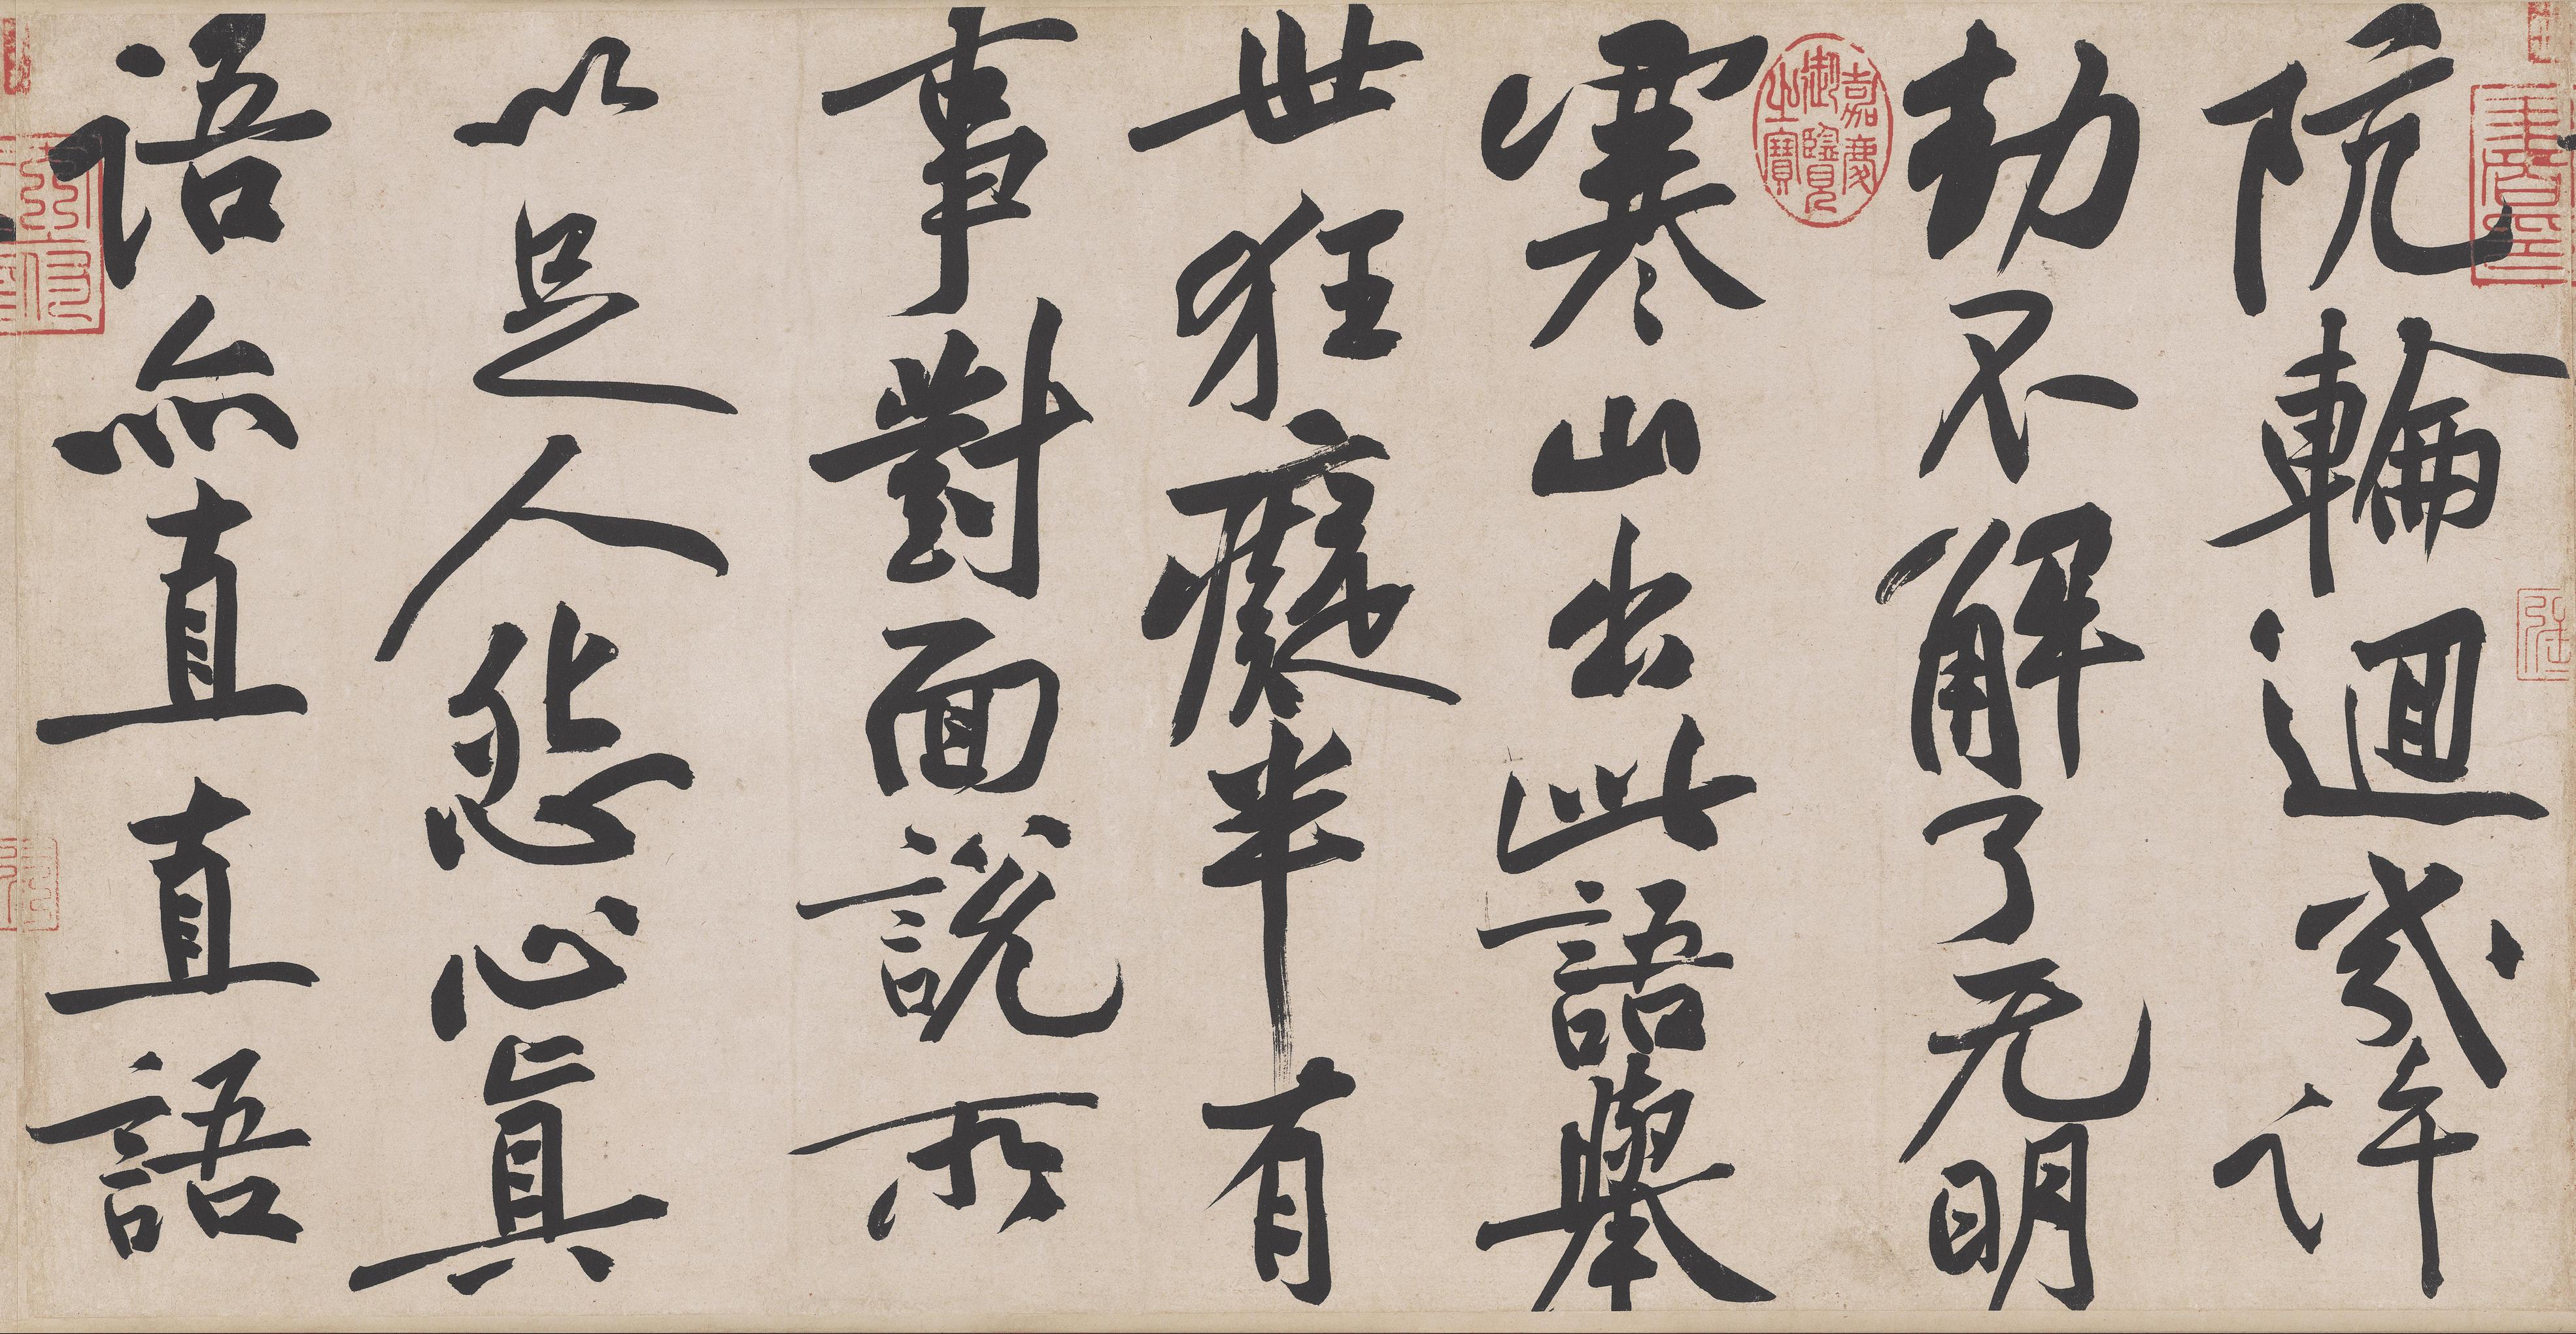 阬輪迴幾許
劫不解了无明
寒山出此語舉
世狂癡半有
事對面說所
以足人怨心真
語亦直直語
嘉慶御覽之寶